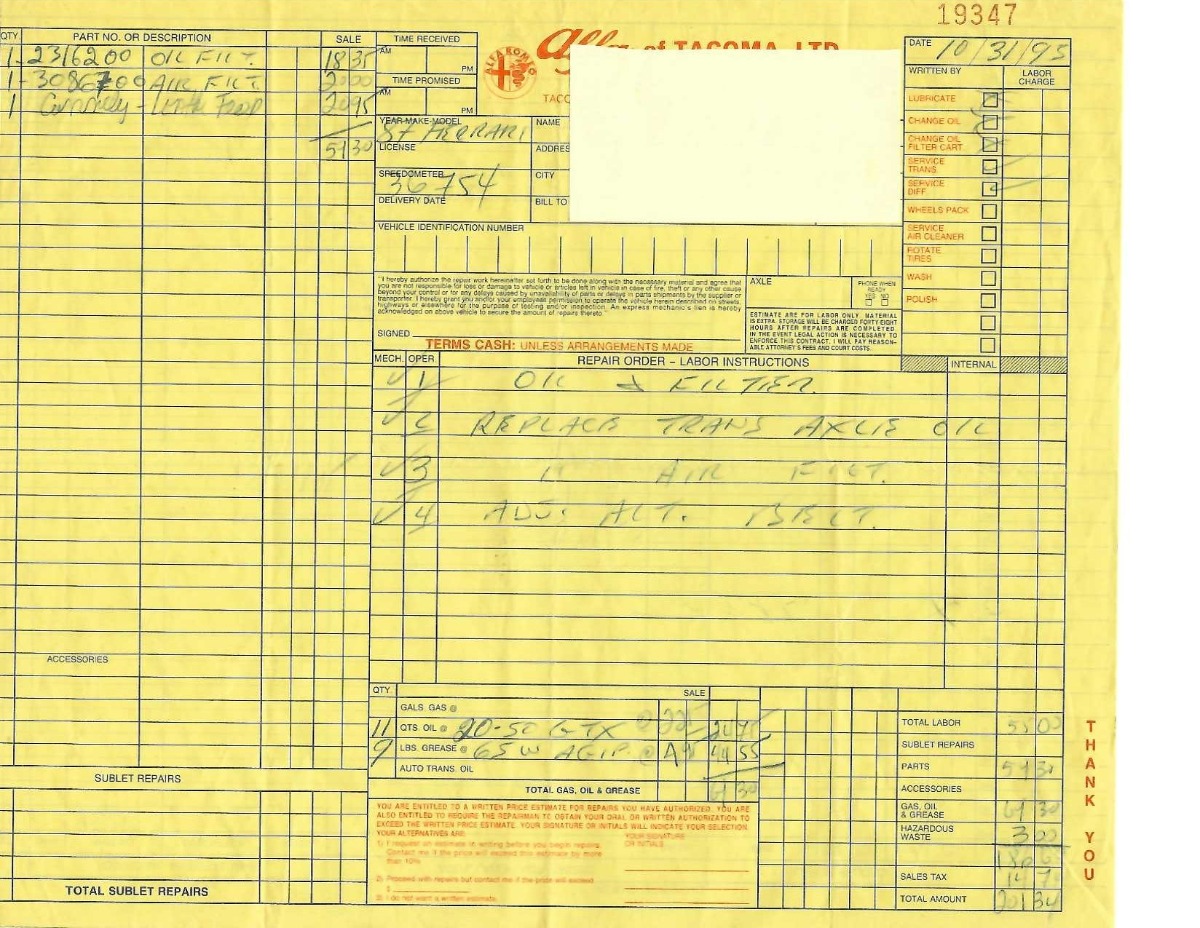 19347
QTY. PART NO. OR DESCRIPTION SALE
1-2316200 OIL FILT. 18 35
1-3086700 AIR FILT. 20 00
1 20 95
59 30
TIME RECEIVED
AM
PM
TIME PROMISED
AM
PM
ALFA ROMEO
Alfa of TACOMA, LTD
DATE 10/31/95
YEAR-MAKE-MODEL
87 FERRARI
LICENSE
SPEEDOMETER
36754
DELIVERY DATE
NAME
CITY
BILL TO
VEHICLE IDENTIFICATION NUMBER
WRITTEN BY LABOR CHARGE
LUBRICATE
CHANGE OIL
CHANGE OIL FILTER CART.
SERVICE TRANS.
SERVICE DIFF.
WHEELS PACK
SERVICE AIR CLEANER
ROTATE TIRES
WASH
POLISH
"I hereby authorize the repair work hereinafter set forth to be done along with the necessary material and agree that
you are not responsible for loss or damage to vehicle or articles left in vehicle in case of fire, theft or any other cause
beyond your control or for any delays caused by unavailability of parts or delays in parts shipments by the supplier or
transporter. I hereby grant you and/or your employees permission to operate the vehicle herein described on streets,
highways or elsewhere for the purpose of testing and/or inspection. An express mechanic's lien is hereby
acknowledged on above vehicle to secure the amount of repairs thereto."
SIGNED
TERMS CASH: UNLESS ARRANGEMENTS MADE
AXLE
PHONE WHEN READY
YES NO
ESTIMATE ARE FOR LABOR ONLY, MATERIAL
IS EXTRA. STORAGE WILL BE CHARGED FORTY-EIGHT
HOURS AFTER REPAIRS ARE COMPLETED.
IN THE EVENT LEGAL ACTION IS NECESSARY TO
ENFORCE THIS CONTRACT, I WILL PAY REASON-
ABLE ATTORNEY'S FEES AND COURT COSTS.
MECH. OPER. REPAIR ORDER – LABOR INSTRUCTIONS INTERNAL
1 OIL & FILTER
2 REPLACE TRANS AXLE OIL
3 " AIR FILT.
4 ADJ. ALT. BELT.
ACCESSORIES
SUBLET REPAIRS
TOTAL SUBLET REPAIRS
QTY. SALE
GALS. GAS @
11 QTS. OIL @ 20-50 GTX @ 225 24 75
9 LBS. GREASE @ 65W AGIP @ 44 55
AUTO TRANS. OIL
TOTAL GAS, OIL & GREASE 69 30
YOU ARE ENTITLED TO A WRITTEN PRICE ESTIMATE FOR REPAIRS YOU HAVE AUTHORIZED. YOU ARE
ALSO ENTITLED TO REQUIRE THE REPAIRMAN TO OBTAIN YOUR ORAL OR WRITTEN AUTHORIZATION TO
EXCEED THE WRITTEN PRICE ESTIMATE. YOUR SIGNATURE OR INITIALS WILL INDICATE YOUR SELECTION.
YOUR ALTERNATIVES ARE:
YOUR SIGNATURE OR INITIALS
1) I request an estimate in writing before you begin repairs.
Contact me if the price will exceed this estimate by more
than 10%
2) Proceed with repairs but contact me if the price will exceed
$
3) I do not want a written estimate.
TOTAL LABOR 55 00
SUBLET REPAIRS
PARTS 59 30
ACCESSORIES
GAS, OIL & GREASE 69 30
HAZARDOUS WASTE 3 00
SALES TAX
TOTAL AMOUNT 201 34
THANK YOU